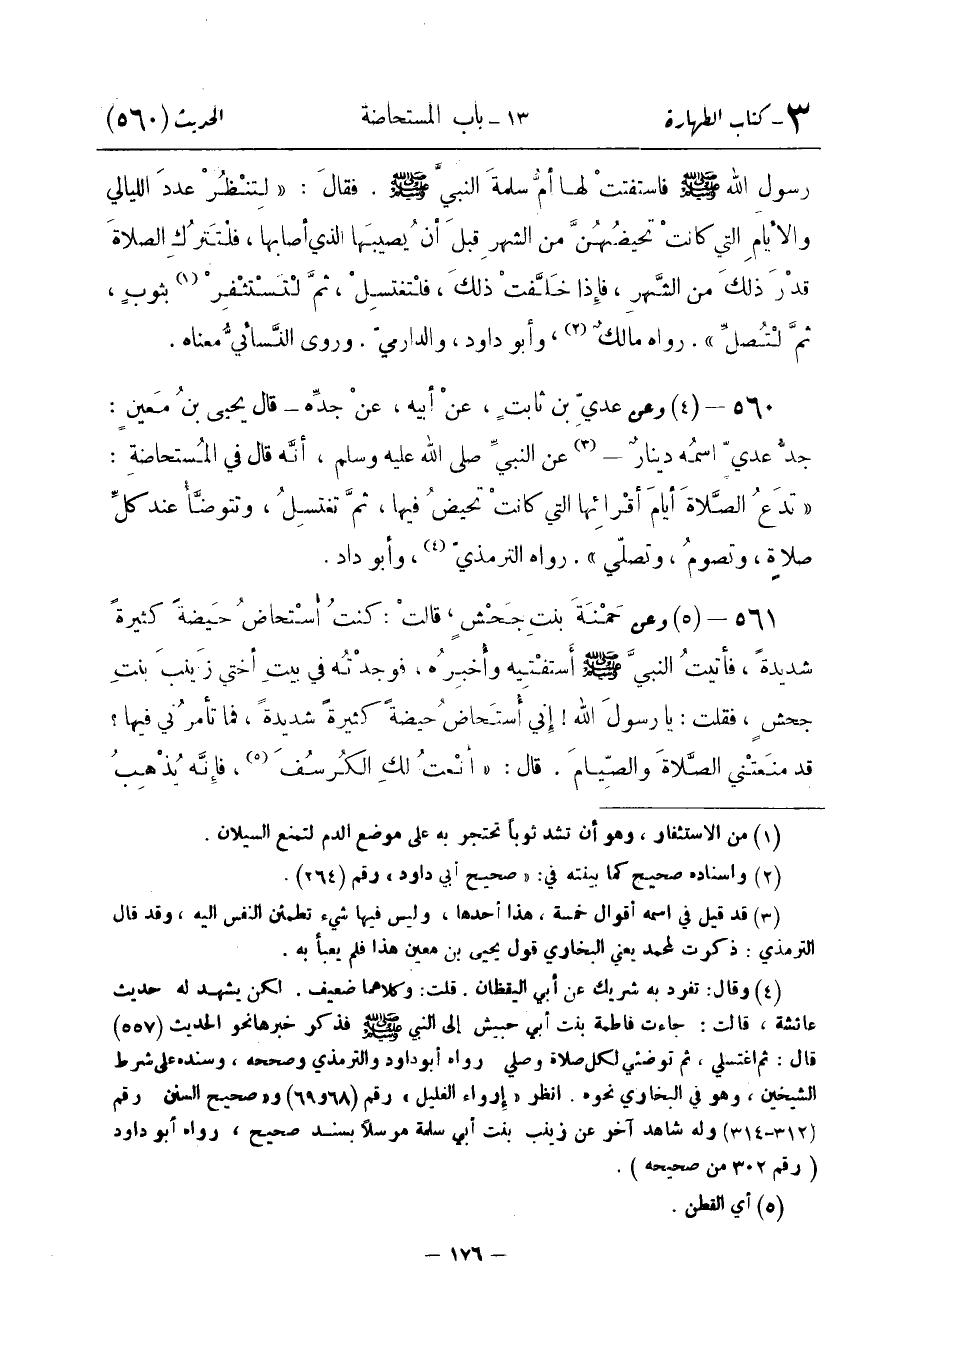 ٣ - كتاب الطهارة ١٣ - باب المستحاضة الحديث (٥٦٠)
رسول الله ﷺ فاستفتتْ لها أمُّ سلمةَ النبيَّ ﷺ . فقالَ : « لِتنْظُرْ عددَ الليالي
والأيامِ التي كانتْ تحيضُهُنَّ من الشهرِ قبلَ أن يُصيبَها الذي أصابها ، فلْتَترُكِ الصلاةَ
قدْرَ ذلكَ من الشَّهرِ ، فإذا خلَّفتْ ذلكَ ، فلتغتسلْ ، ثمَّ لْتَستَثْفِرْ (١) بثوبٍ ،
ثمَّ لْتُصلِّ » . رواه مالكٌ (٢) ، وأبو داود ، والدارميّ . وروى النَّسائيُّ معناه .
٥٦٠ – (٤) وعن عديّ بن ثابتٍ ، عنْ أبيه ، عنْ جدِّه – قال يحيى بنُ مَعينٍ :
جدُّ عديّ اسمُه دينارٌ – (٣) عن النبيِّ صلى الله عليه وسلم ، أنَّه قال في المُستحاضةِ :
« تدَعُ الصَّلاةَ أيامَ أقْرائها التي كانتْ تحيضُ فيها ، ثمَّ تغتسلُ ، وتتوضَّأُ عند كلِّ
صلاةٍ ، وتصومُ ، وتصلّي » . رواه الترمذيّ (٤) ، وأبو داد .
٥٦١ – (٥) وعن حَمْنَةَ بنتِ جَحْشٍ ، قالتْ : كنتُ أُسْتَحاضُ حَيضةً كثيرةً
شديدةً ، فأتيتُ النبيَّ ﷺ أَستفْتِيه وأُخبرُه ، فوجدْتُه في بيتِ أختي زَينبَ بنتِ
جحشٍ ، فقلت : يا رسولَ الله ! إني أُستَحاضُ حيضةً كثيرةً شديدةً ، فما تأمرُني فيها ؟
قد منعَتْني الصَّلاةَ والصِّيامَ . قال : « أنْعتُ لكِ الكُرسُفَ (٥) ، فإنَّه يُذْهِبُ
(١) من الاستثفار ، وهو أن تشد ثوباً تحتجر به على موضع الدم لتمنع السيلان .
(٢) واسناده صحيح كما بينته في : « صحيح أبي داود » رقم (٢٦٤) .
(٣) قد قيل في اسمه أقوال خمسة ، هذا أحدها ، وليس فيها شيء تطمئن النفس اليه ، وقد قال
الترمذي : ذكرت لمحمد يعني البخاري قول يحيى بن معين هذا فلم يعبأ به .
(٤) وقال : تفرد به شريك عن أبي اليقظان . قلت : وكلاهما ضعيف . لكن يشهد له حديث
عائشة ، قالت : جاءت فاطمة بنت أبي حبيش إلى النبي ﷺ فذكر خبرها نحو الحديث (٥٥٧)
قال : ثم اغتسلي ، ثم توضئي لكل صلاة وصلي رواه أبو داود والترمذي وصححه ، وسنده على شرط
الشيخين ، وهو في البخاري نحوه . انظر « إرواء الغليل » رقم (٦٨و٦٩) و« صحيح السنن رقم
(٣١٢-٣١٤) وله شاهد آخر عن زينب بنت أبي سلمة مرسلاً بسند صحيح ، رواه أبو داود
( رقم ٣٠٢ من صحيحه ) .
(٥) أي القطن .
– ١٧٦ –